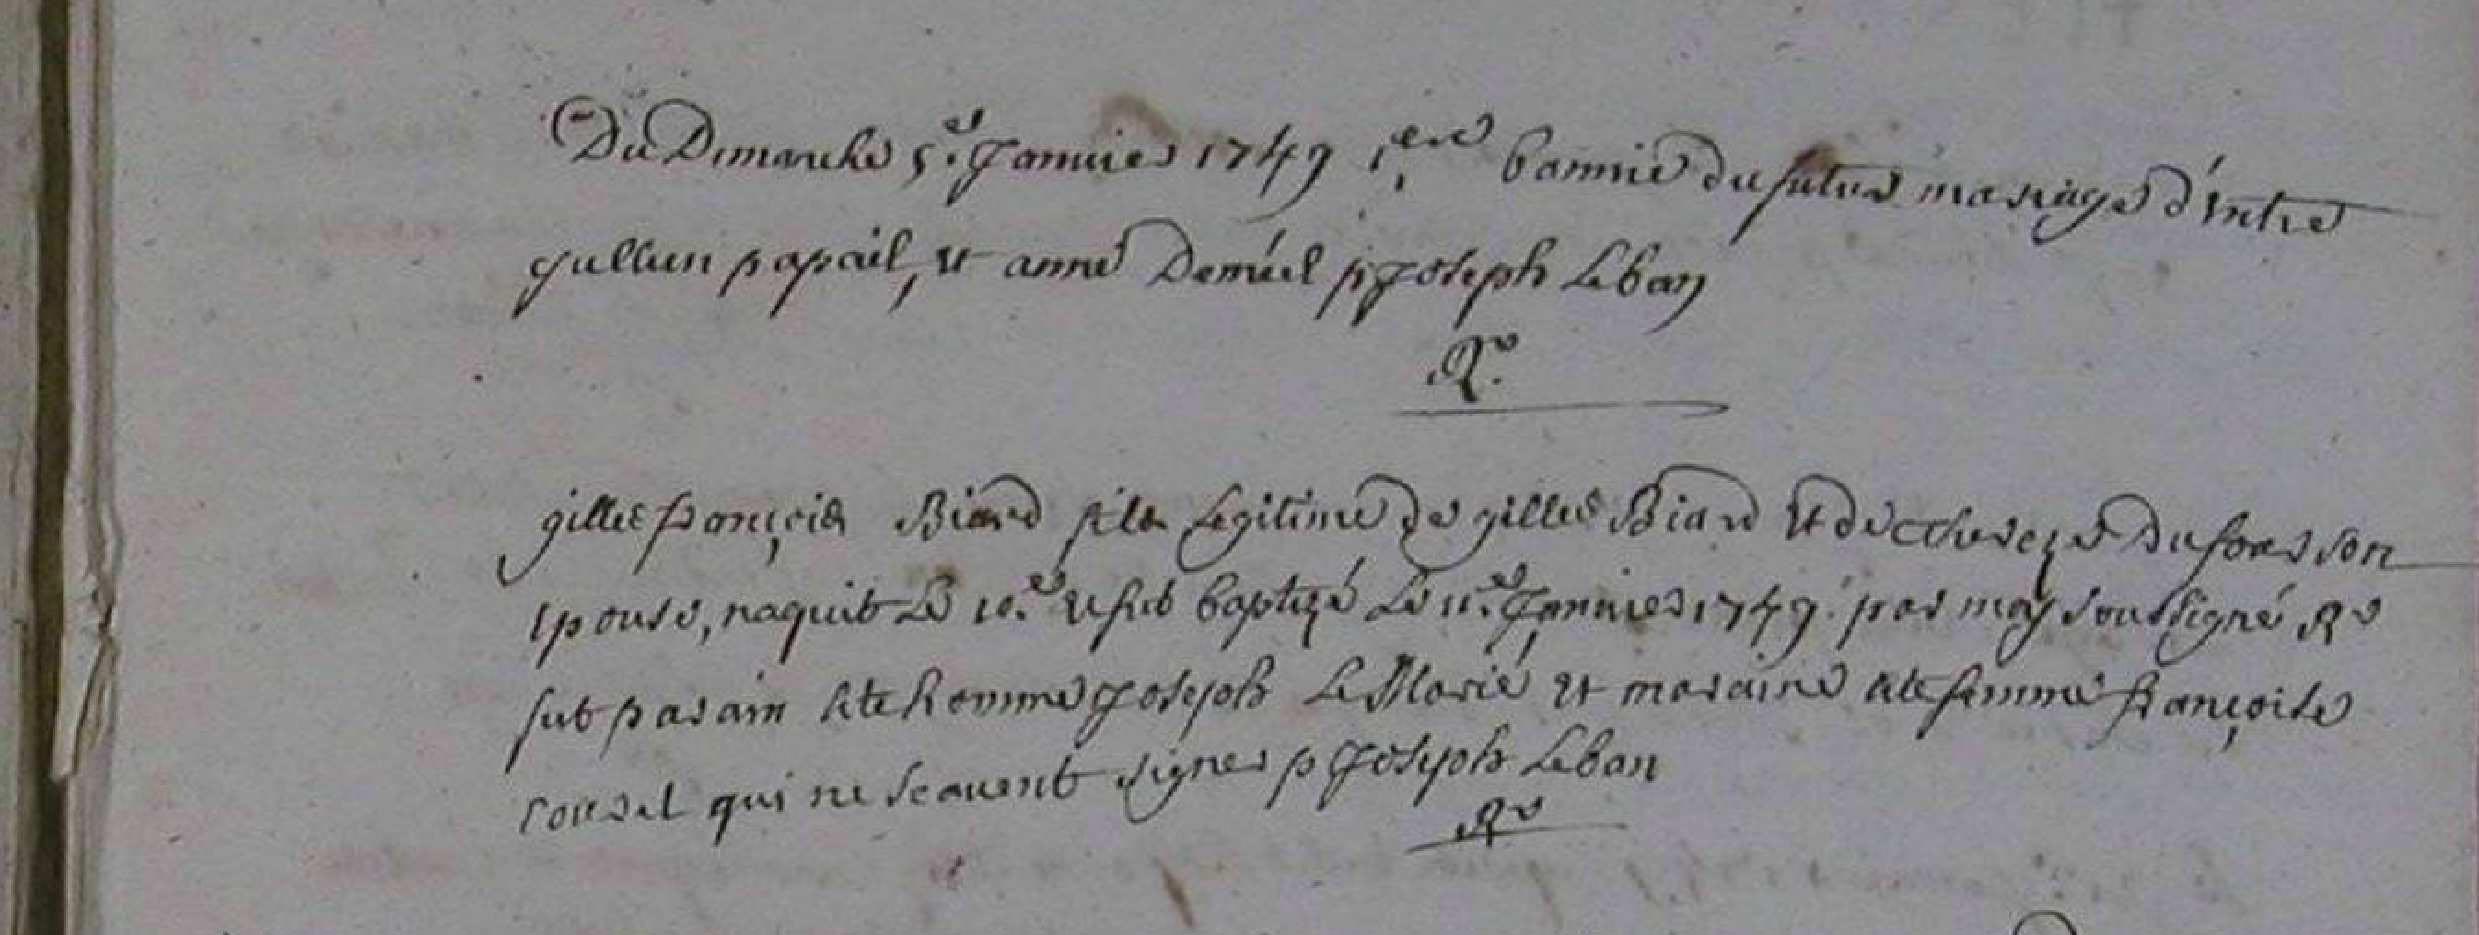 Du Dimanche 5.e Janvier 1749 1ere bannie du futur mariage d'entre
jullien papail, et anne Deméel p Joseph Leban
Rr.
gilles françois Biard fils legitime de gilles Biard et de therese Dufour son
epouse, naquit Le 10.e et fut baptizé Le 11.e Janvier 1749. par moy soussigné Rr
fut parain hte homme Joseph Le Marié et maraine hte femme françoise
coudel qui ne scavent signer p Joseph Leban
Rr